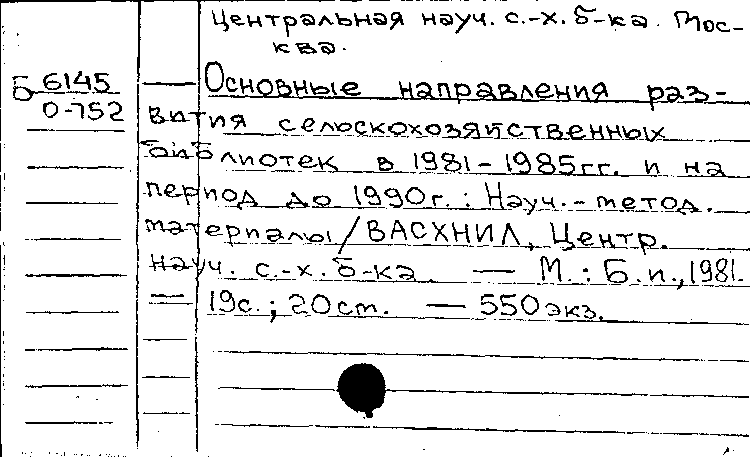 Центральная науч. с.-х. б-ка. Мос-
ква.
Б 6145
О-752
Основные направления раз-
вития сельскохозяйственных
библиотек в 1981-1985гг. и на
период до 1990г.: Науч.-метод.
материалы/ВАСХНИЛ, Центр.
науч. с.-х. б-ка. — М.: Б.и., 1981.
— 19с.; 20ст. — 550экз.